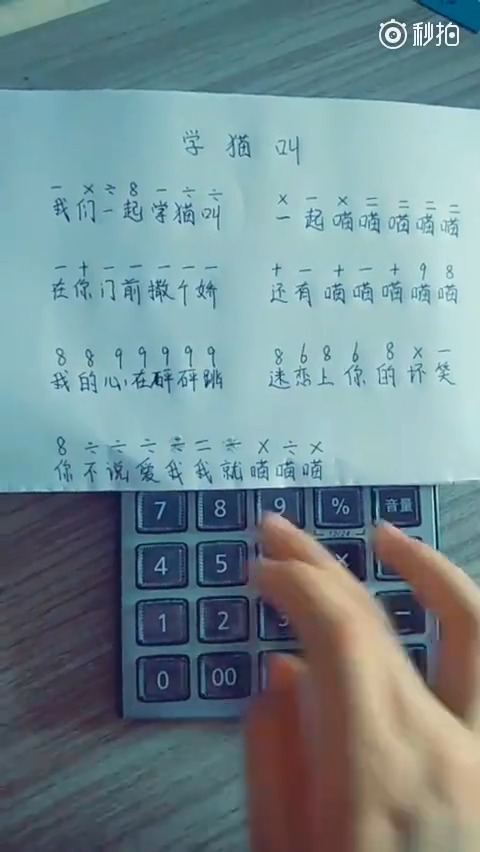 秒拍
学猫叫
－ × ÷ 8 － ÷ ÷ × － × = = = =
我们一起学猫叫 一起喵喵喵喵喵
－ + － － － － － + － + － + 9 8
在你门前撒个娇 还有喵喵喵喵喵
8 8 9 9 9 9 9 8 6 8 6 8 × －
我的心在砰砰跳 迷恋上你的坏笑
8 ÷ ÷ ÷ ÷ = ÷ × ÷ ×
你不说爱我我就喵喵喵
7 8 9 % 音量
4 5 ×
1 2 3 －
0 00